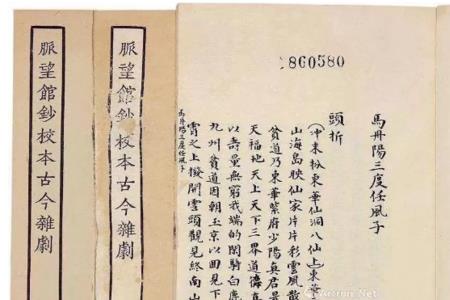 脈望館鈔校本古今雜劇
脈望館鈔校本古今雜劇
860580
馬丹陽三度任風子
頭折
(冲末扮東華仙洞八仙上東華
山海島映仙家片片彩雲風散
貧道乃東華紫府少陽真君是
天福地天上天下三界道德真
以壽量無窮我端的閑騎白鹿
九州貧道因朝玉京以回見下
霄之上撥開雲頭觀見終南山
馬丹陽三度任風子